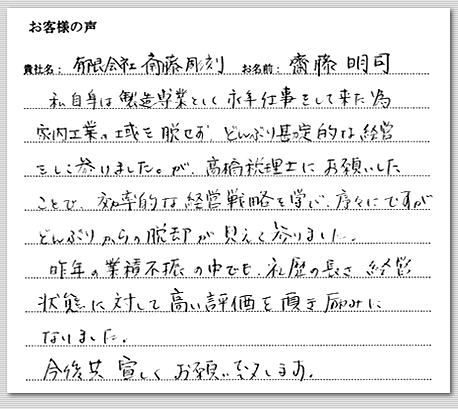 お客様の声
貴社名： 有限会社 齋藤彫刻 お名前： 齋藤 明司
私自身は製造専業として永年仕事をして来た為
家内工業の域を脱せず、どんぶり勘定的な経営
をして参りました。が、高橋税理士にお願いした
ことで、効率的な経営戦略を学び、序々にですが
どんぶりからの脱却が見えて参りました。
昨年の業積不振の中でも、社歴の長さ 経営
状態に対して高い評価を頂き励みに
なりました。
今後共 宜しくお願い致します。